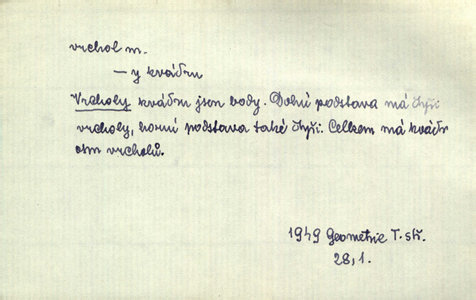 vrchol m.
— y kvádru
Vrcholy kvádru jsou body. Dolní podstava má čtyři
vrcholy, horní podstava také čtyři. Celkem má kvádr
osm vrcholů.
1949 Geometrie T. stř.
28,1.